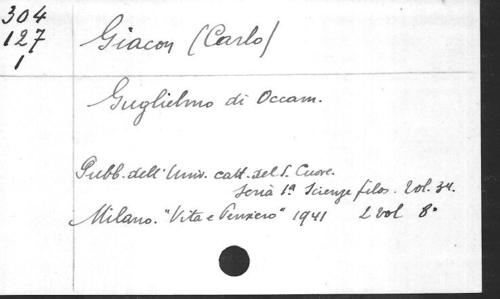 304
127
1
Giacon (Carlo)
Guglielmo di Occam.
Pubb. dell'Univ. catt. del S. Cuore.
Serià 1ª Scienze filos. Vol. 34.
Milano. "Vita e Pensiero" 1941 2 vol 8°